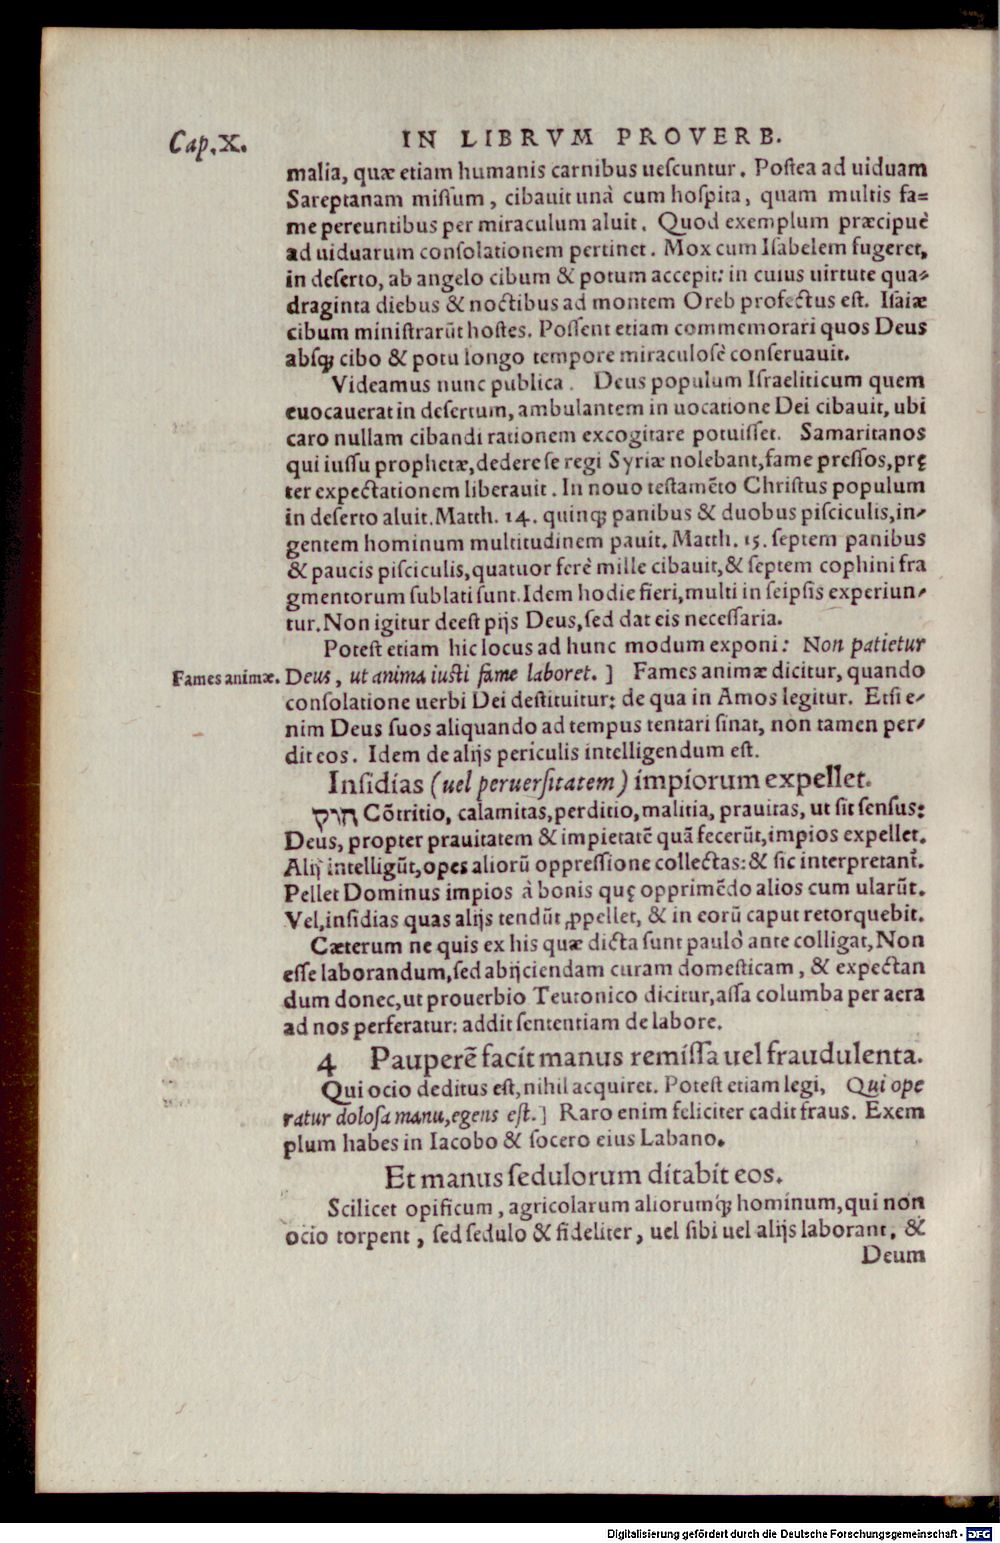 Cap. X.
IN LIBRVM PROVERB.
malia, quæ etiam humanis carnibus uescuntur. Postea ad uiduam
Sareptanam missum, cibauit unà cum hospita, quam multis fa=
me pereuntibus per miraculum aluit. Quod exemplum præcipuè
ad uiduarum consolationem pertinet. Mox cum Isabelem fugeret,
in deserto, ab angelo cibum & potum accepit: in cuius uirtute qua-
draginta diebus & noctibus ad montem Oreb profectus est. Isaiæ
cibum ministrarũt hostes. Possent etiam commemorari quos Deus
absq; cibo & potu longo tempore miraculosè conseruauit.
Videamus nunc publica. Deus populum Israeliticum quem
euocauerat in desertum, ambulantem in uocatione Dei cibauit, ubi
caro nullam cibandi rationem excogitare potuisset. Samaritanos
qui iussu prophetæ, dedere se regi Syriæ nolebant, fame pressos, prę
ter expectationem liberauit. In nouo testamẽto Christus populum
in deserto aluit. Matth. 14. quinq; panibus & duobus pisciculis, in-
gentem hominum multitudinem pauit. Matth. 15. septem panibus
& paucis pisciculis, quatuor ferè mille cibauit, & septem cophini fra
gmentorum sublati sunt. Idem hodie fieri, multi in seipsis experiun-
tur. Non igitur deest pijs Deus, sed dat eis necessaria.
Potest etiam hic locus ad hunc modum exponi: Non patietur
Fames animæ. Deus, ut anima iusti fame laboret. ] Fames animæ dicitur, quando
consolatione uerbi Dei destituitur: de qua in Amos legitur. Etsi e-
nim Deus suos aliquando ad tempus tentari sinat, non tamen per-
dit eos. Idem de alijs periculis intelligendum est.
Insidias (uel peruersitatem) impiorum expellet.
חוק Cõtritio, calamitas, perditio, malitia, prauitas, ut sit sensus:
Deus, propter prauitatem & impietatẽ quã fecerũt, impios expellet.
Alij intelligũt, opes aliorũ oppressione collectas: & sic interpretant̃.
Pellet Dominus impios à bonis quę opprimẽdo alios cum ularũt.
Vel, insidias quas alijs tendũt ꝓpellet, & in eorũ caput retorquebit.
Cæterum ne quis ex his quæ dicta sunt paulò ante colligat, Non
esse laborandum, sed abijciendam curam domesticam, & expectan
dum donec, ut prouerbio Teutonico dicitur, assa columba per aera
ad nos perferatur: addit sententiam de labore.
4 Pauperẽ facit manus remissa uel fraudulenta.
Qui ocio deditus est, nihil acquiret. Potest etiam legi, Qui ope
ratur dolosa manu, egens est. ] Raro enim feliciter cadit fraus. Exem
plum habes in Iacobo & socero eius Labano.
Et manus sedulorum ditabit eos.
Scilicet opificum, agricolarum aliorumq́; hominum, qui non
ocio torpent, sed sedulo & fideliter, uel sibi uel alijs laborant, &
Deum
Digitalisierung gefördert durch die Deutsche Forschungsgemeinschaft - DFG